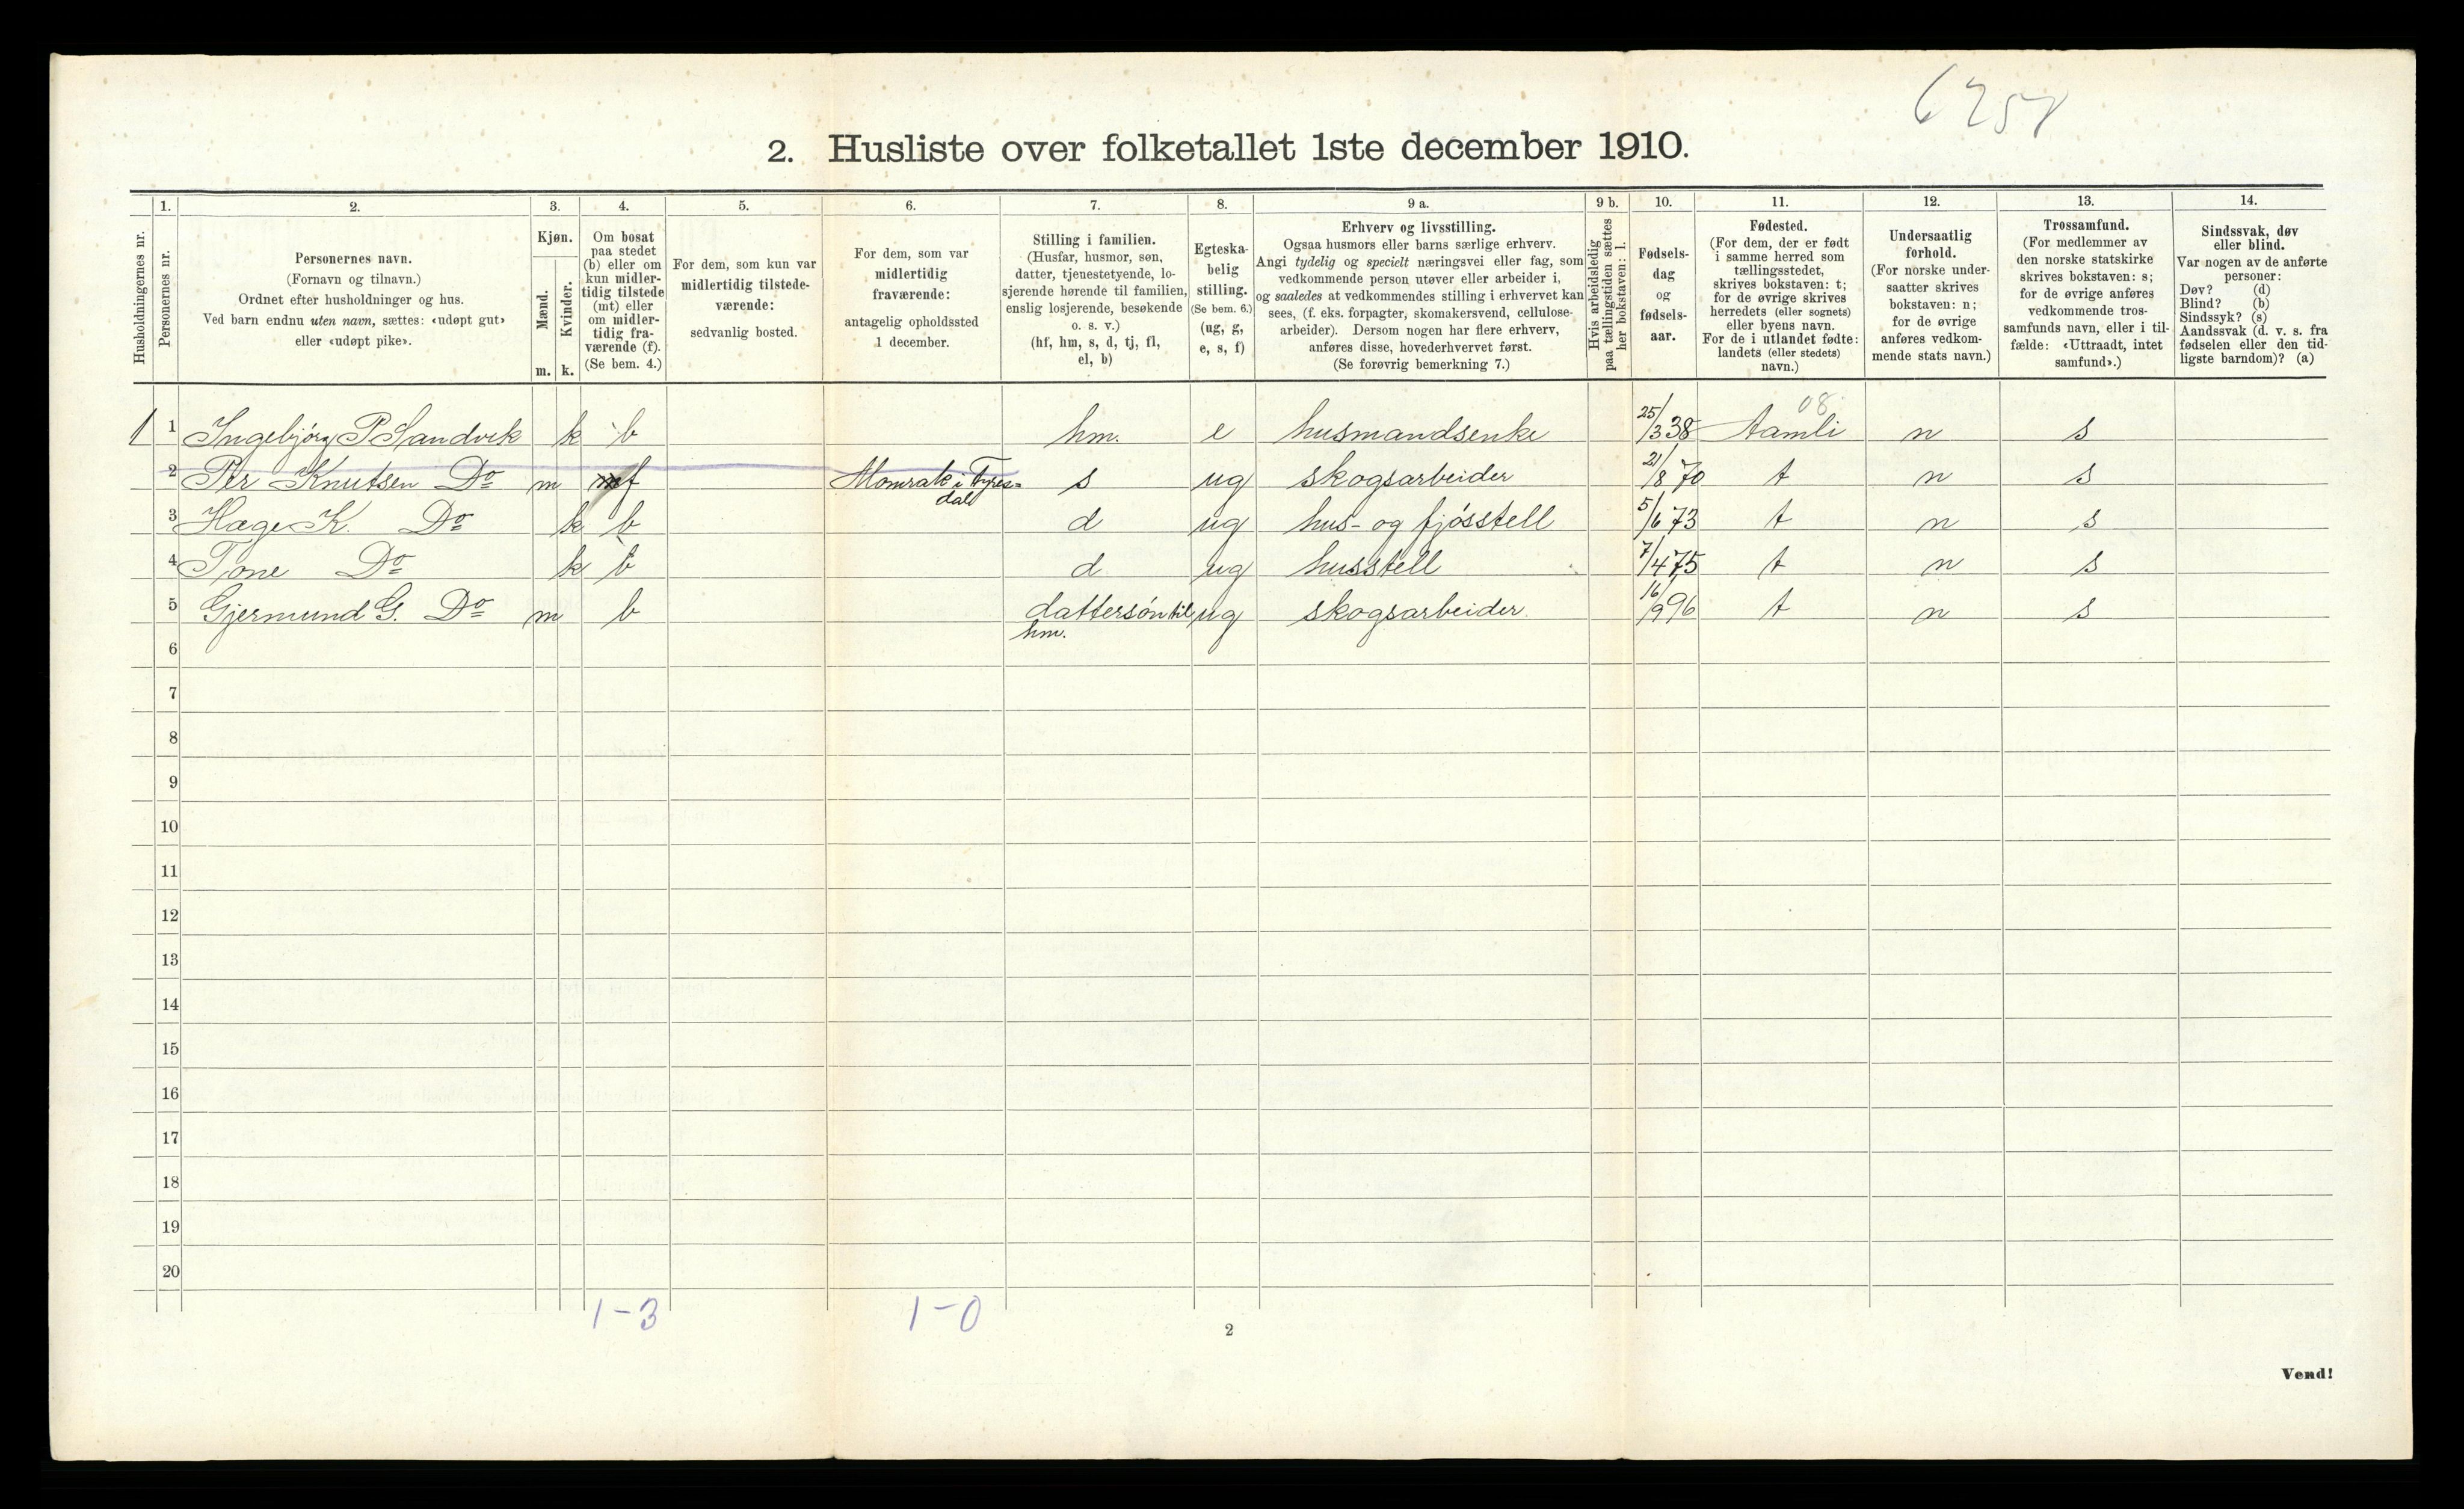 6258
2. Husliste over folketallet 1ste december 1910.
Husholdningernes nr.
1.
Personernes nr.
2.
Personernes navn.
(Fornavn og tilnavn.)
Ordnet efter husholdninger og hus.
Ved barn endnu uten navn, sættes: «udøpt gut»
eller «udøpt pike».
3.
Kjøn.
Mænd.
Kvinder.
m. k.
4.
Om bosat
paa stedet
(b) eller om
kun midler-
tidig tilstede
(mt) eller
om midler-
tidig fra-
værende (f).
(Se bem. 4.)
5.
For dem, som kun var
midlertidig tilstede-
værende:
sedvanlig bosted.
6.
For dem, som var
midlertidig
fraværende:
antagelig opholdssted
1 december.
7.
Stilling i familien.
(Husfar, husmor, søn,
datter, tjenestetyende, lo-
sjerende hørende til familien,
enslig losjerende, besøkende
o. s. v.)
(hf, hm, s, d, tj, fl,
el, b)
8.
Egteska-
belig
stilling.
(Se bem. 6.)
(ug, g,
e, s, f)
9 a.
Erhverv og livsstilling.
Ogsaa husmors eller barns særlige erhverv.
Angi tydelig og specielt næringsvei eller fag, som
vedkommende person utøver eller arbeider i,
og saaledes at vedkommendes stilling i erhvervet kan
sees, (f. eks. forpagter, skomakersvend, cellulose-
arbeider). Dersom nogen har flere erhverv,
anføres disse, hovederhvervet først.
(Se forøvrig bemerkning 7.)
9 b.
Hvis arbeidsledig
paa tællingstiden sættes
her bokstaven: l.
10.
Fødsels-
dag
og
fødsels-
aar.
11.
Fødested.
(For dem, der er født
i samme herred som
tællingsstedet,
skrives bokstaven: t;
for de øvrige skrives
herredets (eller sognets)
eller byens navn.
For de i utlandet fødte:
landets (eller stedets)
navn.)
12.
Undersaatlig
forhold.
(For norske under-
saatter skrives
bokstaven: n;
for de øvrige
anføres vedkom-
mende stats navn.)
13.
Trossamfund.
(For medlemmer av
den norske statskirke
skrives bokstaven: s;
for de øvrige anføres
vedkommende tros-
samfunds navn, eller i til-
fælde: «Uttraadt, intet
samfund».)
14.
Sindssvak, døv
eller blind.
Var nogen av de anførte
personer:
Døv? (d)
Blind? (b)
Sindssyk? (s)
Aandssvak (d. v. s. fra
fødselen eller den tid-
ligste barndom)? (a)
08
1 1 Ingebjørg P Sandvik k b hm. e husmandsenke 25/3 38 Aamli n s
2 Per Knutsen Do m f Momrak i Tyres= s ug skogsarbeider 21/8 70 t n s
dal
3 Hæge K. Do k b d ug hus- og fjøsstell 5/6 73 t n s
4 Tone Do k b d ug husstell 7/4 75 t n s
5 Gjermund G. Do m b dattersøn til ug skogsarbeider. 16/9 96 t n s
hm.
6
7
8
9
10
11
12
13
14
15
16
17
18
19
20
1-3 1-0
2
Vend!